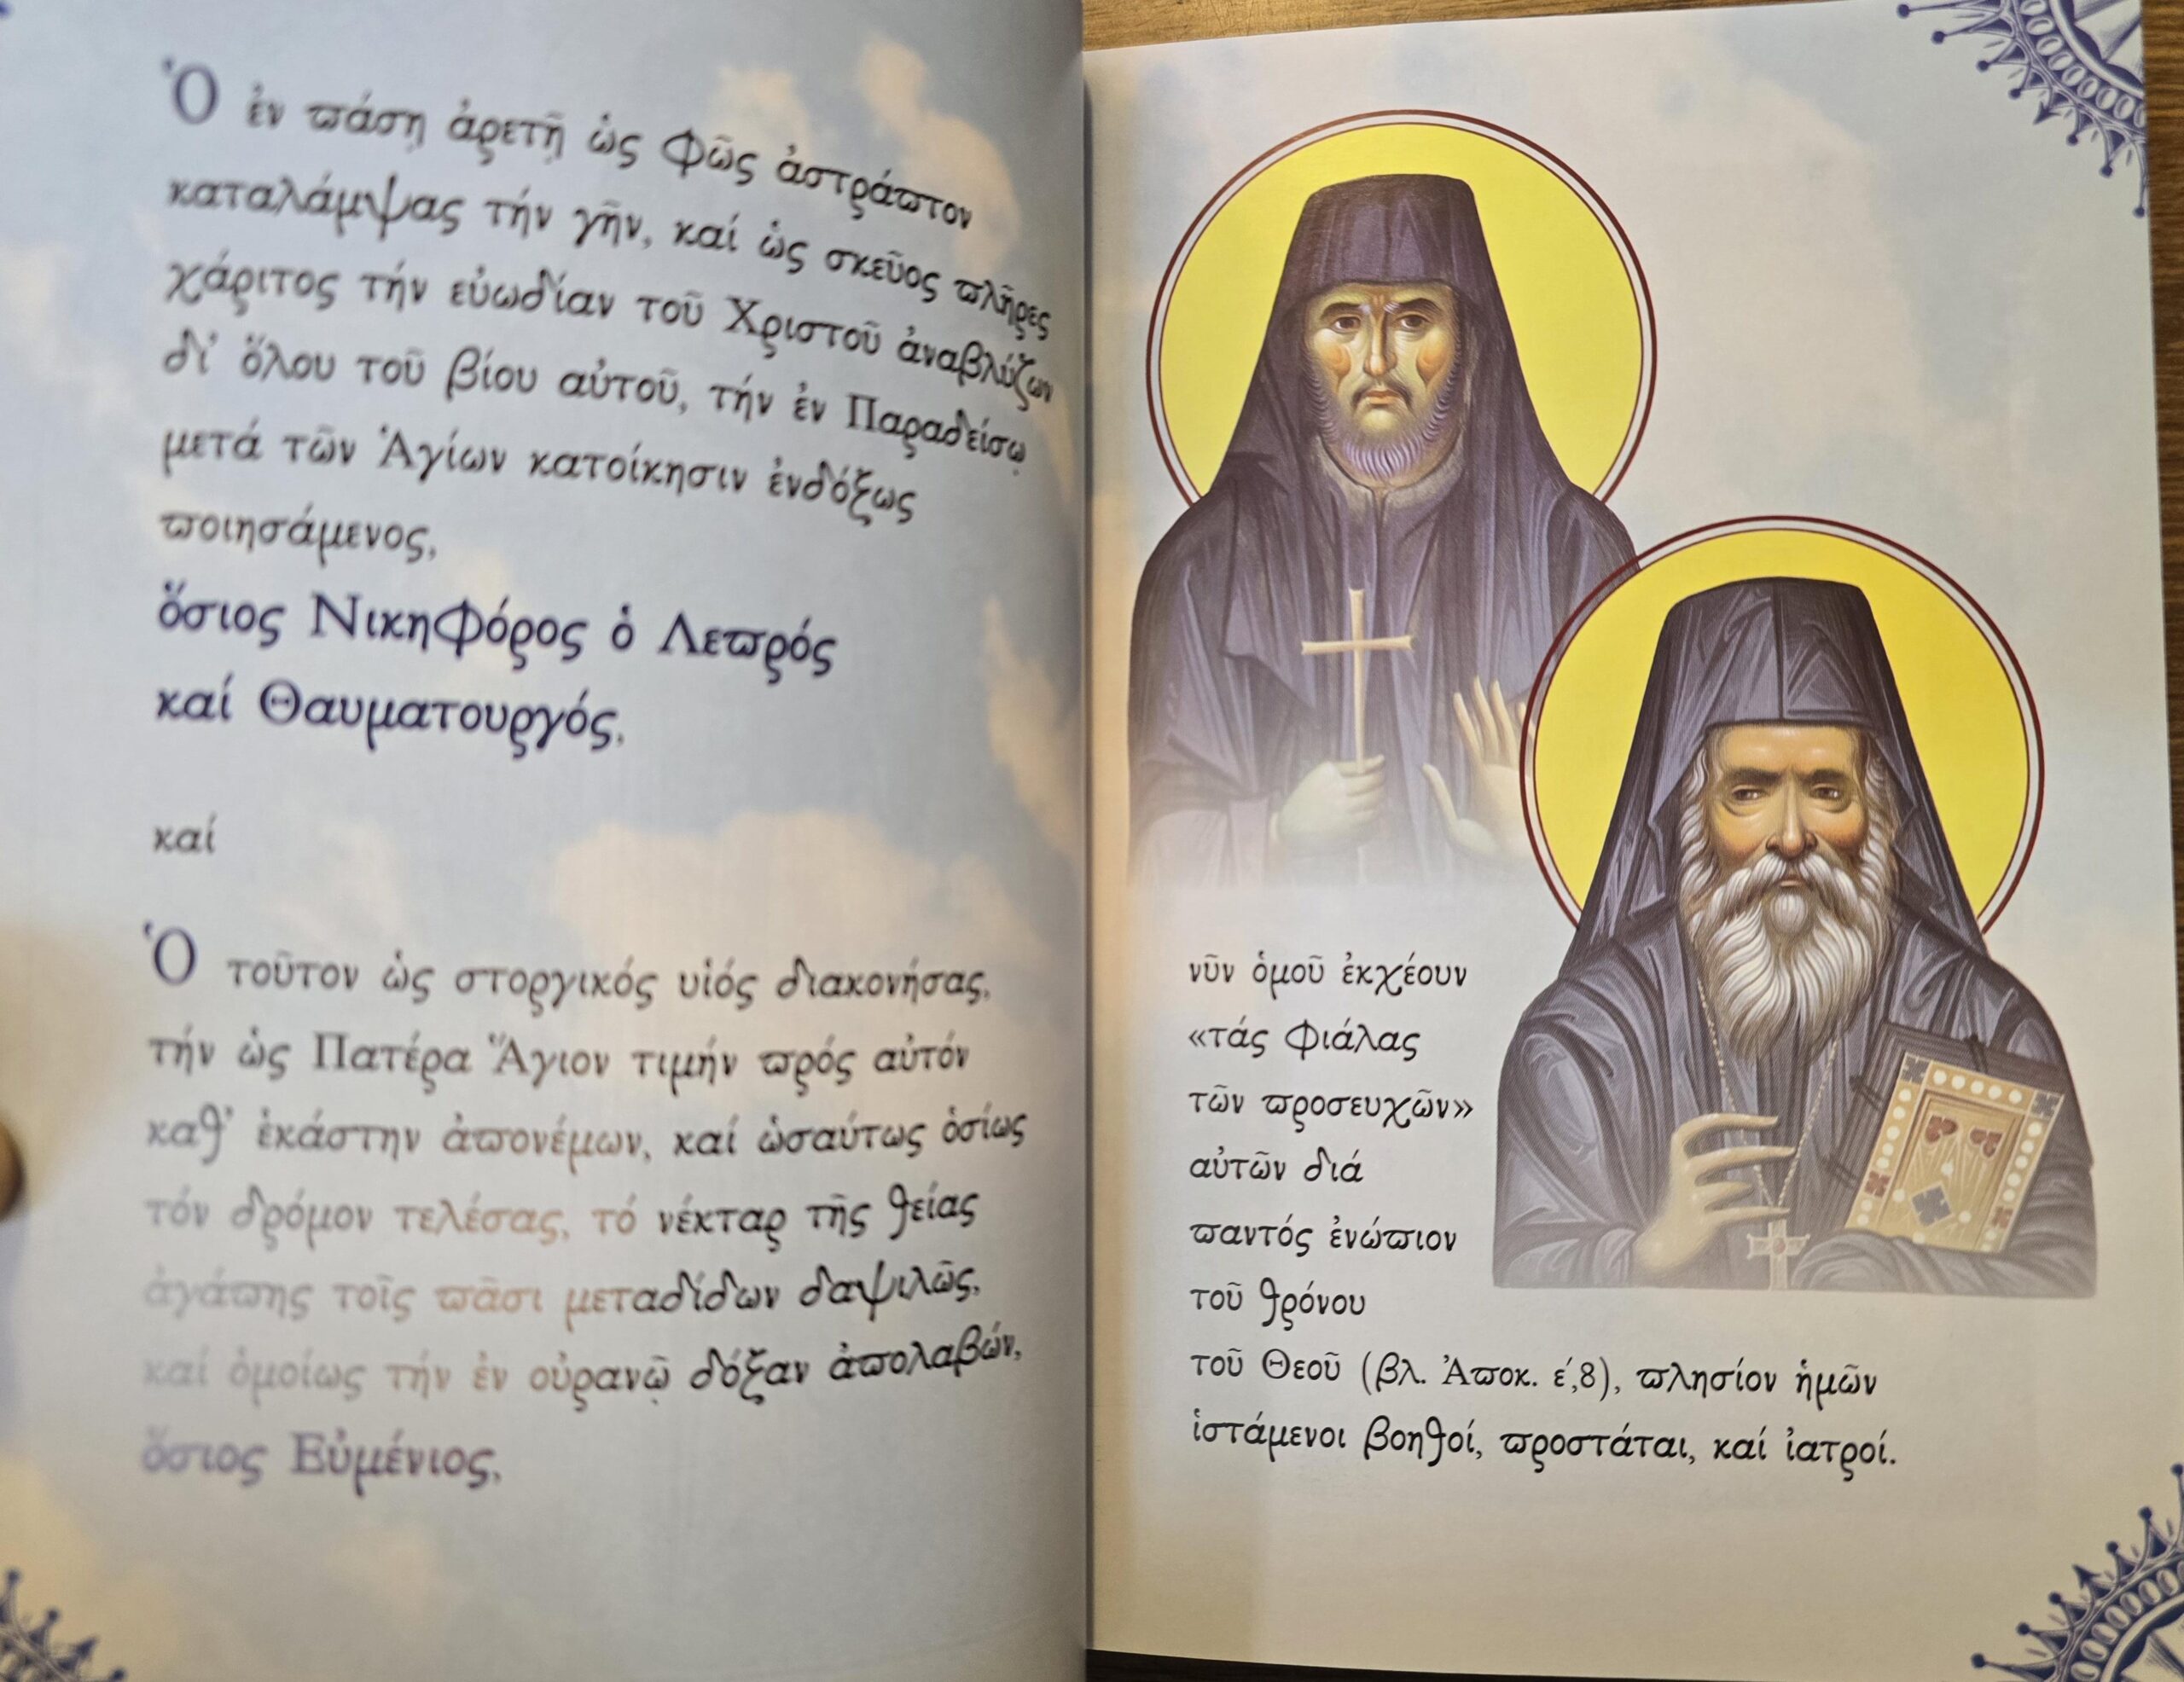 Ὁ ἐν πάσῃ ἀρετῇ ὡς Φῶς ἀστράπτον
καταλάμψας τήν γῆν, καί ὡς σκεῦος πλῆρες
χάριτος τήν εὐωδίαν τοῦ Χριστοῦ ἀναβλύζων
δι' ὅλου τοῦ βίου αὐτοῦ, τήν ἐν Παραδείσῳ
μετά τῶν Ἁγίων κατοίκησιν ἐνδόξως
ποιησάμενος,
ὅσιος Νικηφόρος ὁ Λεπρός
καί Θαυματουργός,
καί
Ὁ τοῦτον ὡς στοργικός υἱός διακονήσας,
τήν ὡς Πατέρα Ἅγιον τιμήν πρός αὐτόν
καθ' ἑκάστην ἀπονέμων, καί ὡσαύτως ὁσίως
τόν δρόμον τελέσας, τό νέκταρ τῆς θείας
ἀγάπης τοῖς πᾶσι μεταδίδων δαψιλῶς,
καί ὁμοίως τήν ἐν οὐρανῷ δόξαν ἀπολαβών,
ὅσιος Εὐμένιος,
νῦν ὁμοῦ ἐκχέουν
«τάς φιάλας
τῶν προσευχῶν»
αὐτῶν διά
παντός ἐνώπιον
τοῦ θρόνου
τοῦ Θεοῦ (βλ. Ἀποκ. ε΄,8), πλησίον ἡμῶν
ἱστάμενοι βοηθοί, προστάται, καί ἰατροί.